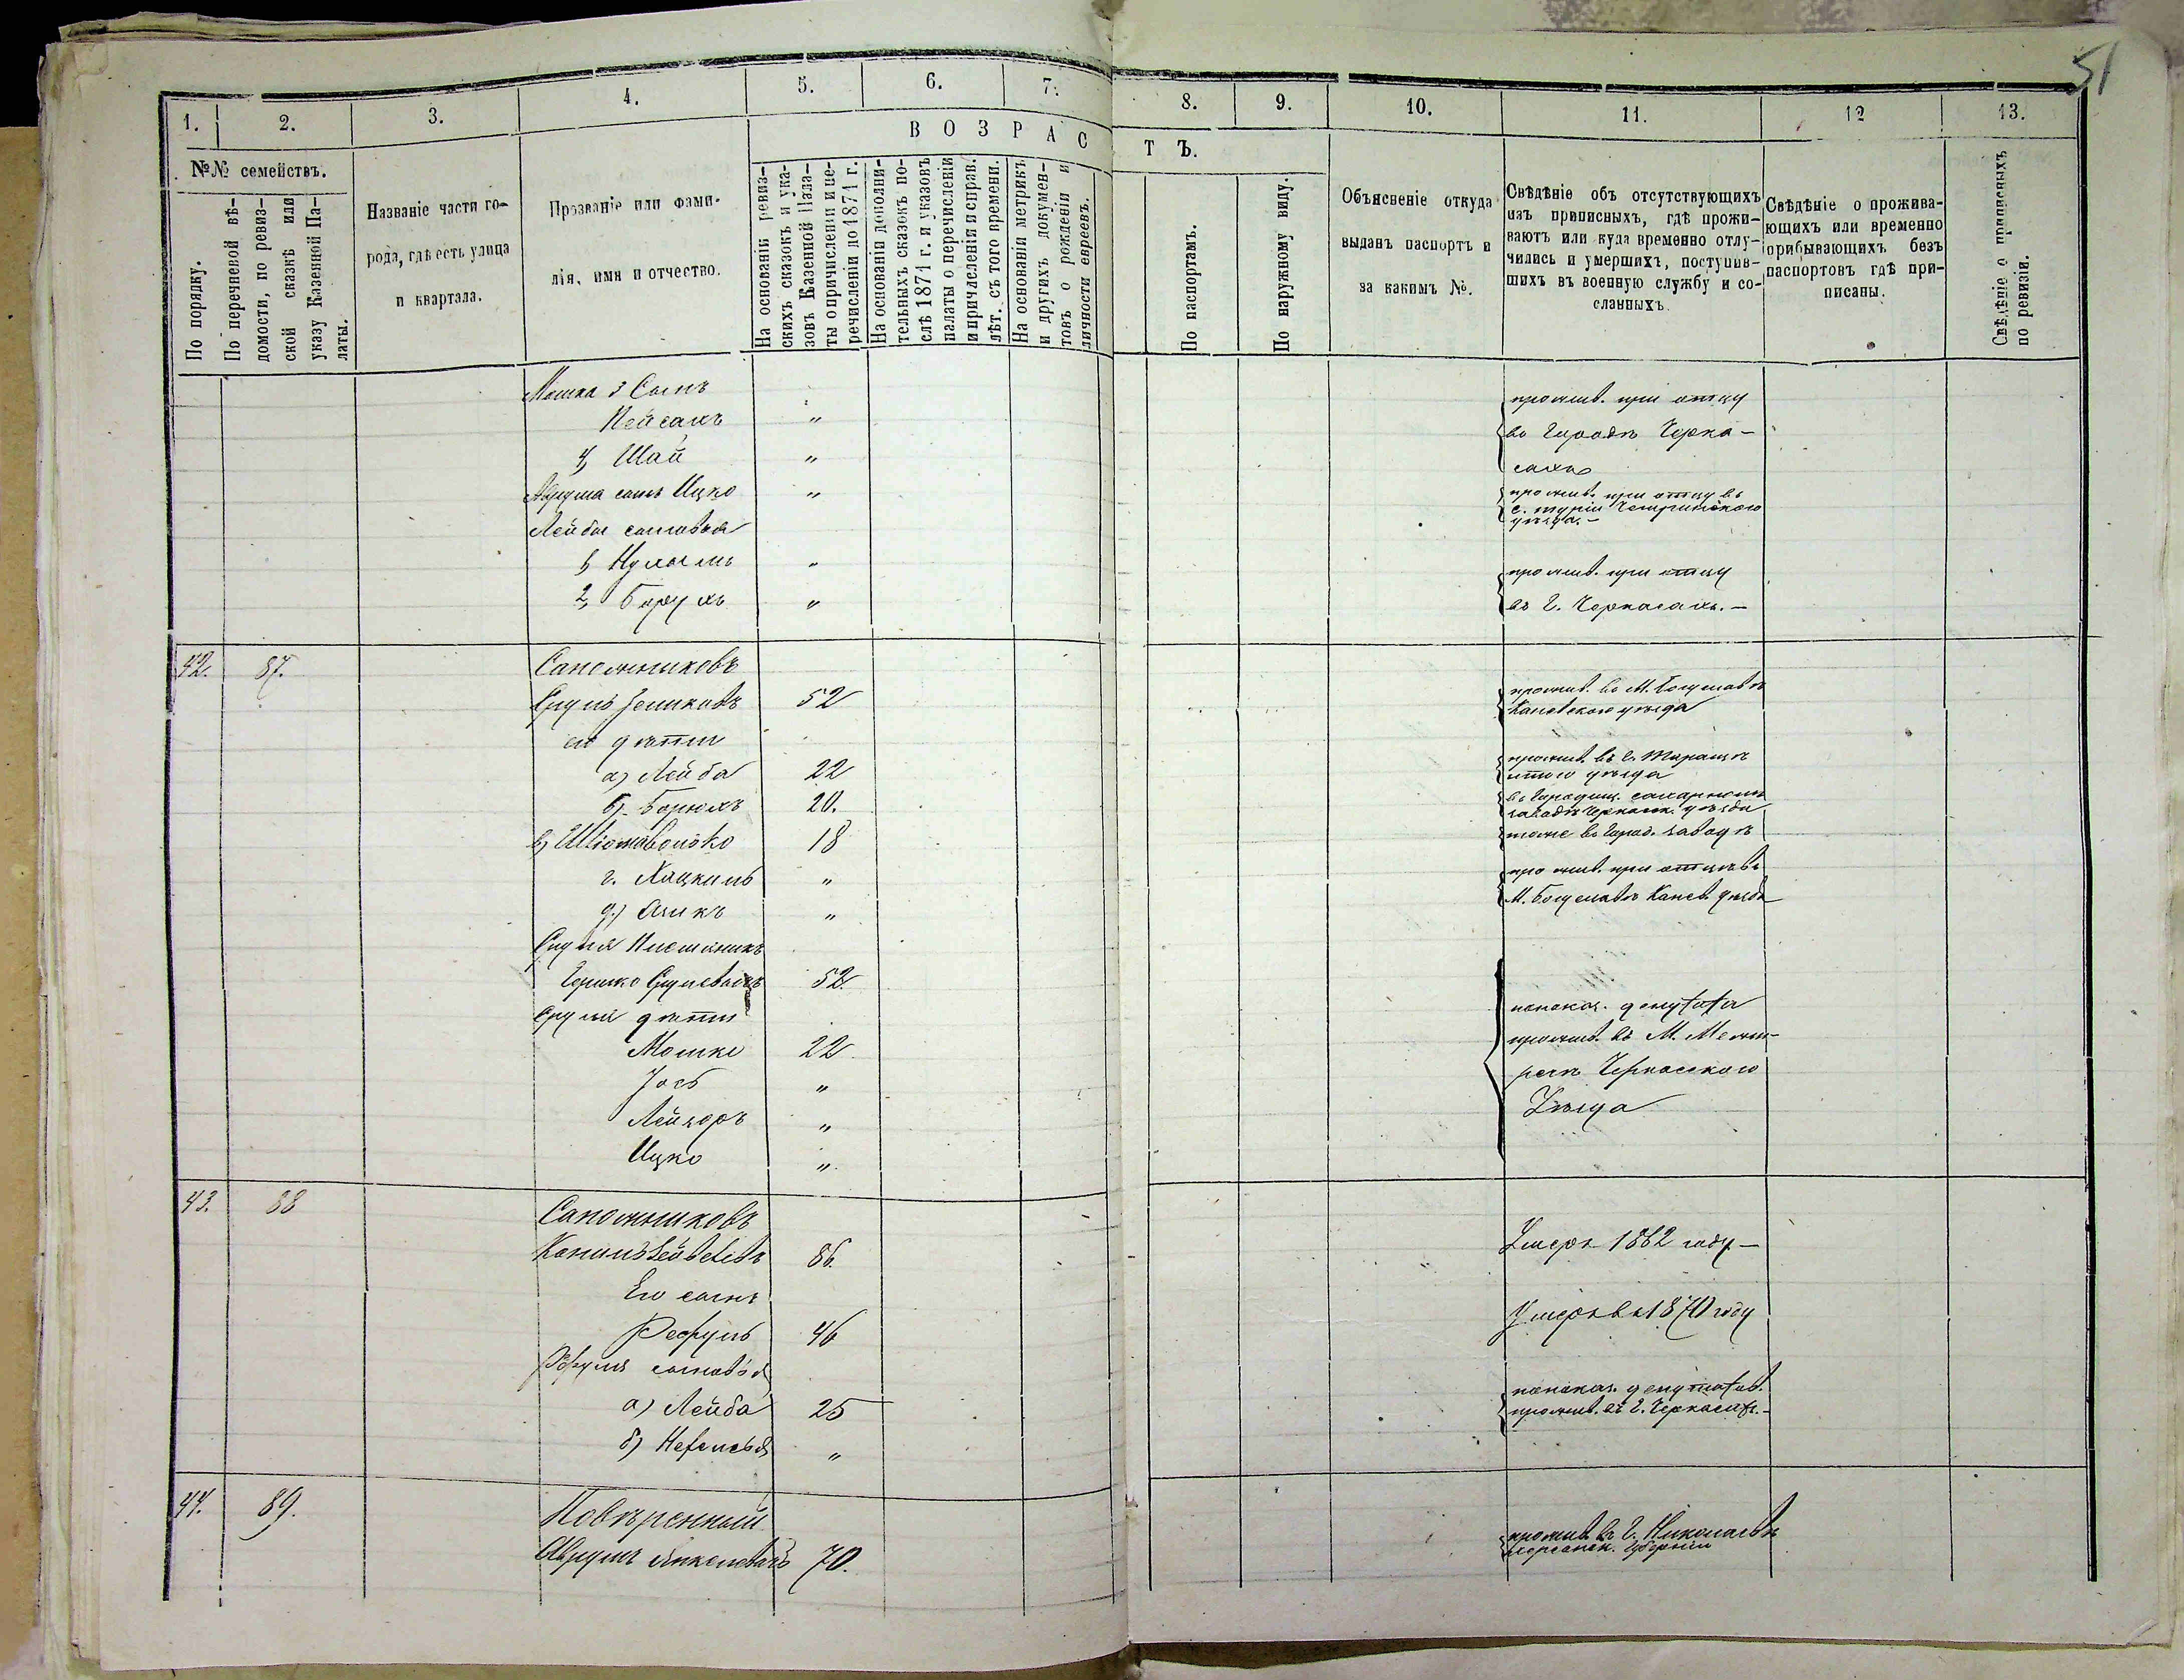 51
1.
2.
3.
4.
5.
6.
7.
8.
9.
10.
11.
12
13.
№№ семействъ.
По порядку.
По перечневой вѣ-
домости, по ревиз-
ской сказкѣ или
указу Казенной Па-
латы.
Названіе части го-
рода, гдѣ есть улица
и квартала.
Прозваніе или фами-
лія, имя и отчество.
ВОЗРАСТЪ.
На основаніи ревиз-
скихъ сказокъ и ука-
зовъ Казенной Пала-
ты о причисленіи и пе-
речисленіи до 1871 г.
На основаніи дополни-
тельныхъ сказокъ по-
слѣ 1871 г. и указовъ
палаты о перечисленіи
и причисленіи и справ.
лѣт. съ того времени.
На основаніи метрикъ
и другихъ докумен-
товъ о рожденіи и
личности евреевъ.
По паспортамъ.
По наружному виду.
Объясненіе откуда
выданъ паспортъ и
за какимъ №.
Свѣдѣніе объ отсутствующихъ
изъ приписныхъ, гдѣ прожи-
ваютъ или куда временно отлу-
чились и умершихъ, поступив-
шихъ въ военную службу и со-
сланныхъ.
Свѣдѣніе о прожива-
ющихъ или временно
прибывающихъ безъ
паспортовъ гдѣ при-
писаны.
Свѣдѣніе о приписныхъ
по ревизіи.
Мошка 3 Сынъ
прожив. при отцу
Пейсахъ "
въ Городѣ Черка-
4, Шая "
сахъ
Аврума сынъ Ицко "
прожив. при отцу въ
с. Чигиринского
уѣзда.-
Лейбы сыновья
1, Нухимъ "
прожив. при отцу
2, Борухъ "
въ Г. Черкасахъ.-
42. 87. Сапожниковъ
Сруль 52
прожив. въ М. Богуславѣ
Каневского уѣзда
его дѣти
а) Лейба 22
прожив. въ г. Таращѣ
этого уѣзда
б) Борухъ 20.
въ Городищ. сахарномъ
заводѣ Черкасск. уѣзда
в) 18
тоже въ Город. заводѣ
г. Хацкиль "
прожив. при отцѣ въ
д) "
М. Богуславѣ Канев. уѣзда
Сруля Племянникъ
Гершко Срулевичъ 52
Сруля дѣти
показан. депутата
Мошко 22
прожив. въ М. Межи-
Іось "
речѣ Черкасского
Лейзоръ "
Уѣзда
Ицко "
43. 88 Сапожниковъ
86.
Умеръ 1862 году-
Его сынъ
Рефуль 46
Умеръ въ 1870 году
Рефуля сыновья
а) Лейба 25
показан. депутатов.
прожив. въ Г. Черкасахъ.-
б) "
44. 89. Повѣренный
Аврумъ Янкелевичъ 70.
прожив. въ Г. Николаевѣ
Херсонск. Губерніи